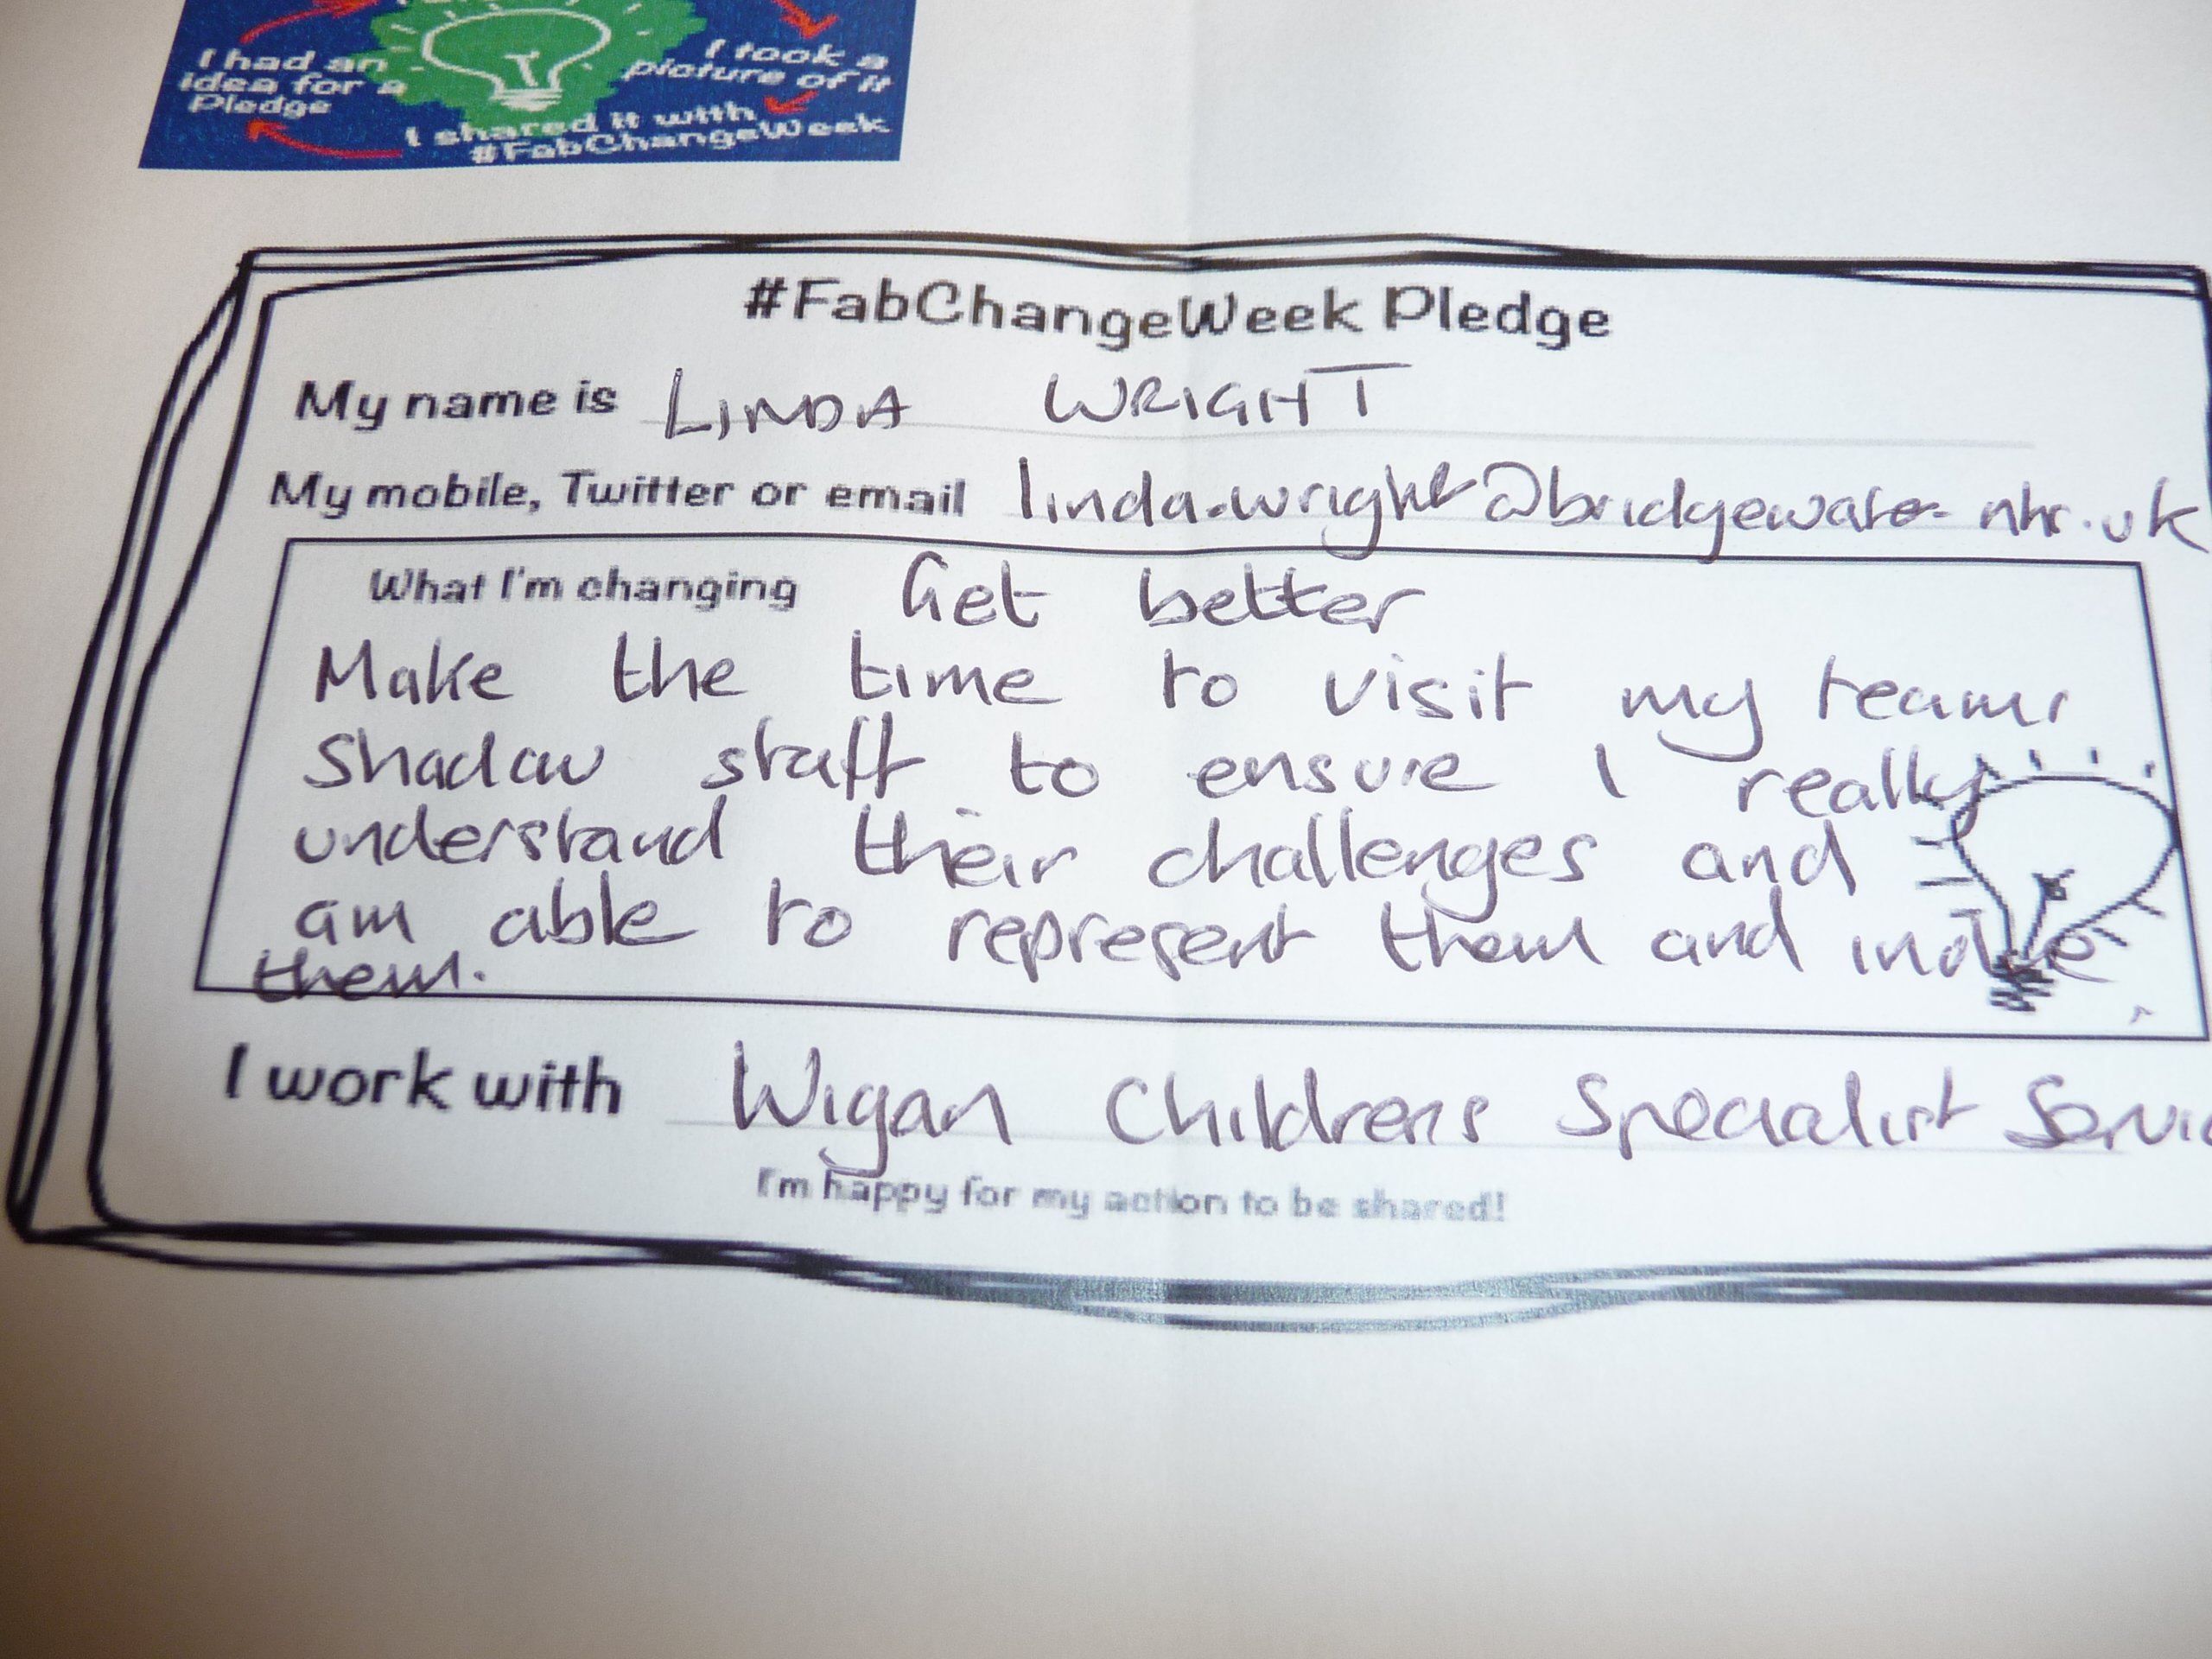 I had an
idea for a
Pledge
I took a
picture of it
I shared it with
#FabChangeWeek
#FabChangeWeek Pledge
My name is LINDA WRIGHT
My mobile, Twitter or email linda.wright@bridgewater.nhs.uk
What I'm changing Get better
Make the time to visit my teams
Shadow staff to ensure I really
understand their challenges and
am able to represent them and
them.
I work with Wigan Childrens Specialist Servic
I'm happy for my action to be shared!